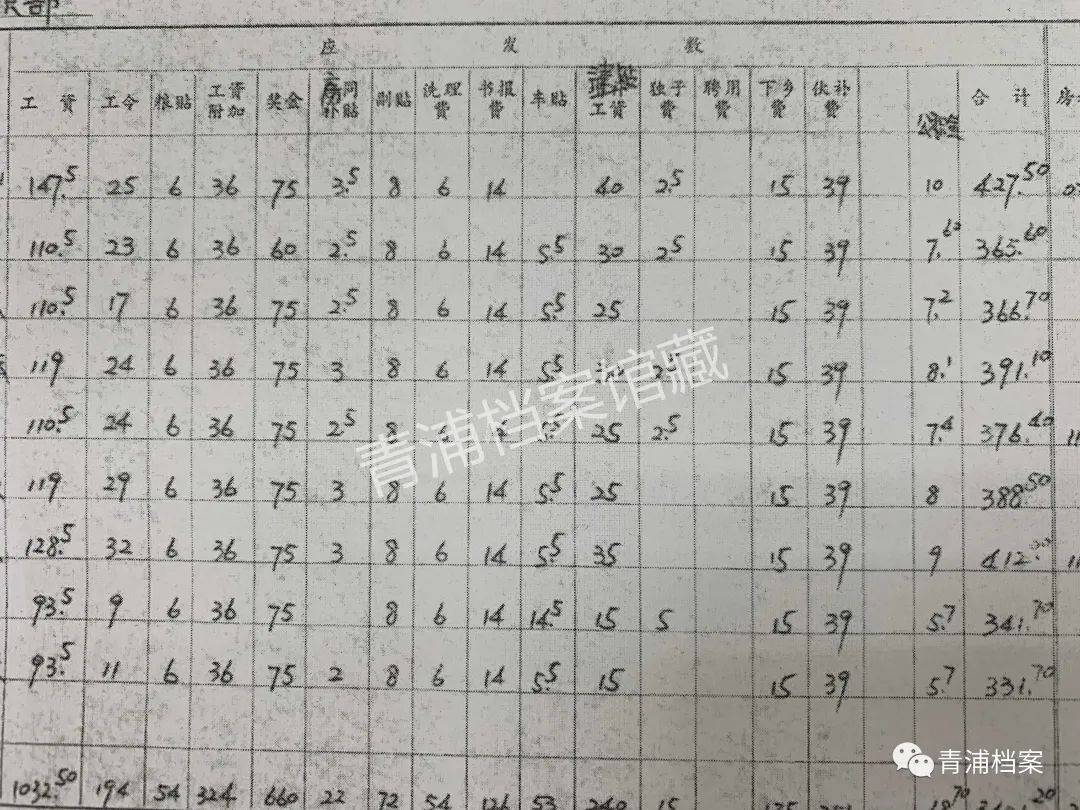 应 发 数
工 资 工令 粮贴 工资附加 奖金 补贴 副贴 洗理费 书报费 车贴 工资 独子费 聘用费 下乡费 伙补费 合 计
147.5 25 6 36 75 3.5 8 6 14 40 2.5 15 39 10 427.50
110.5 23 6 36 60 2.5 8 6 14 5.5 30 2.5 15 39 7.60 365.60
110.5 17 6 36 75 2.5 8 6 14 5.5 25 15 39 7.2 366.70
119 24 6 36 75 3 8 6 14 5.5 2.5 15 39 8.1 391.10
110.5 24 6 36 75 2.5 8 6 5.5 25 2.5 15 39 7.4 376.40
119 29 6 36 75 3 8 6 14 5.5 25 15 39 8 388.50
128.5 32 6 36 75 3 8 6 14 5.5 35 15 39 9 412.00
93.5 9 6 36 75 8 6 14 14.5 15 5 15 39 5.7 341.70
93.5 11 6 36 75 2 8 6 14 5.5 15 15 39 5.7 331.70
1032.50 194 54 324 660 22 72 54 126 53 240 15
青浦档案馆藏
青浦档案